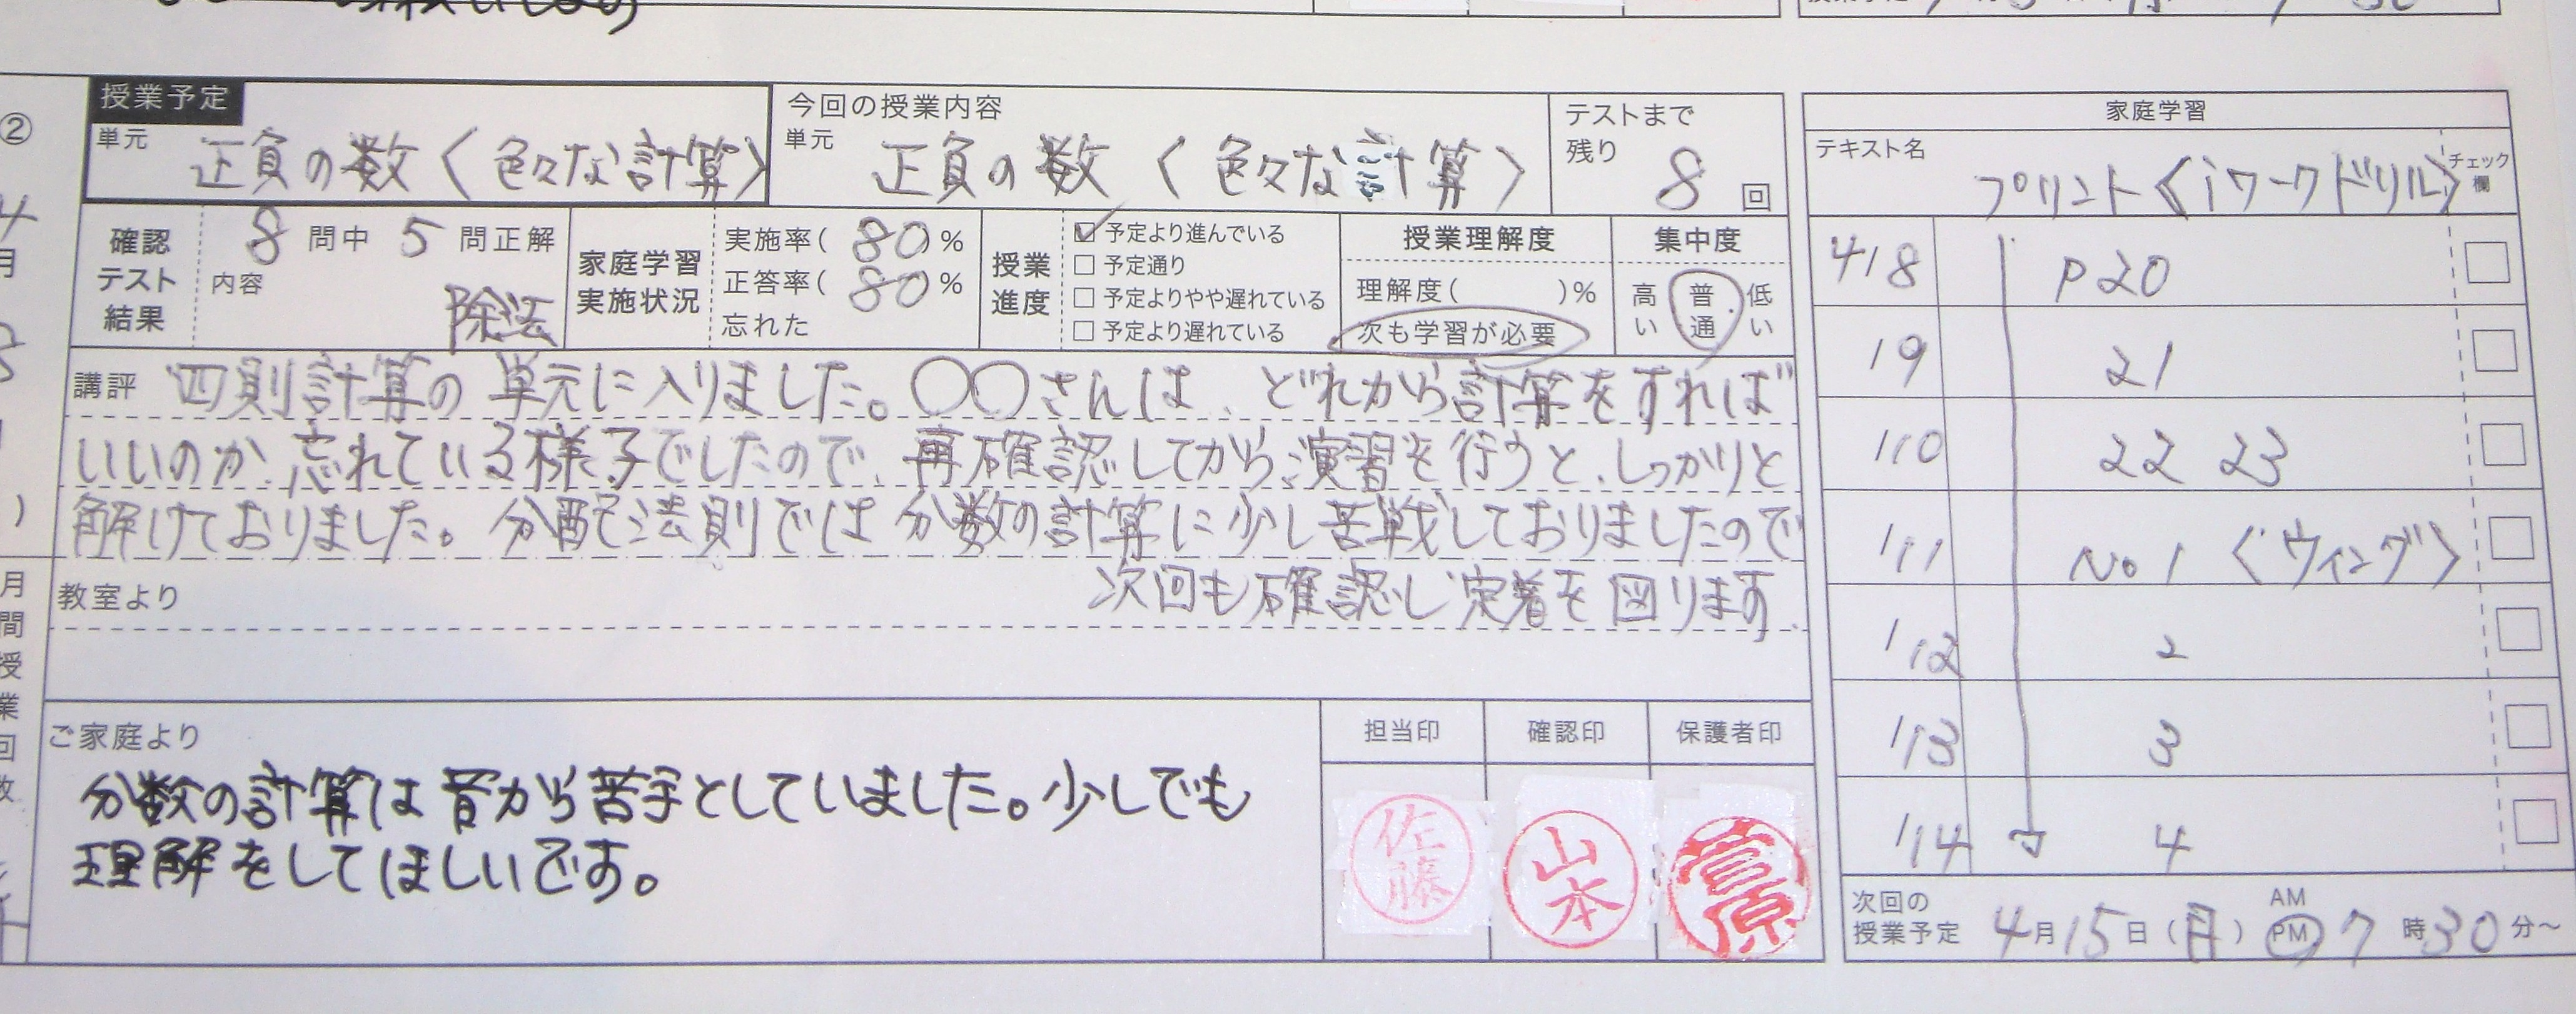 ②
授業予定
単元 正負の数〈色々な計算〉
今回の授業内容
単元 正負の数〈色々な計算〉
テストまで
残り 8 回
確認
テスト
結果
8 問中 5 問正解
内容
除法
家庭学習
実施状況
実施率( 80 %
正答率( 80 %
忘れた
授業
進度
☑ 予定より進んでいる
□ 予定通り
□ 予定よりやや遅れている
□ 予定より遅れている
授業理解度
理解度( )%
次も学習が必要
集中度
高い 普通 低い
講評 四則計算の単元に入りました。〇〇さんは、どれから計算をすれば
いいのか忘れている様子でしたので、再確認してから演習を行うと、しっかりと
解けておりました。分配法則では分数の計算に少し苦戦しておりましたので
次回も確認し定着を図ります。
教室より
ご家庭より
分数の計算は昔から苦手としていました。少しでも
理解をしてほしいです。
担当印 確認印 保護者印
佐藤 山本
家庭学習
テキスト名 プリント〈iワークドリル〉
チェック
欄
4/8 P20
/9 21
/10 22 23
/11 No1〈ウィング〉
/12 2
/13 3
/14 4
次回の
授業予定
4月15日(月) AM PM 7時30分～
月
間
授
業
回
数